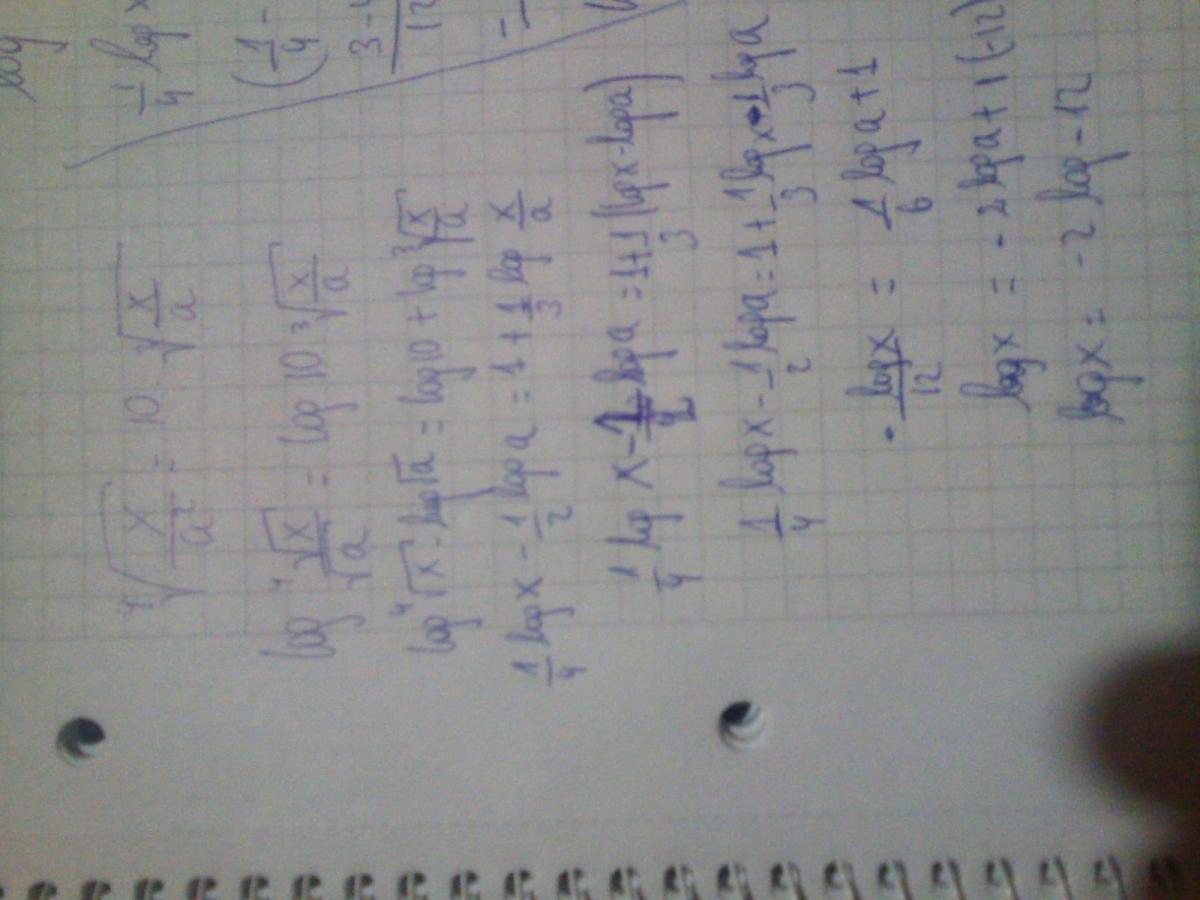 log
1/4 log x
(1/4 -
3-4/12
=
⁴√(x/a²) = 10 ³√(x/a)
log ⁴√x/√a = log 10 ³√(x/a)
log ⁴√x - log√a = log10 + log ³√(x/a)
1/4 log x - 1/2 log a = 1 + 1/3 log x/a
1/4 log x - 1/2 log a = 1+1/3 (log x - log a)
1/4 log x - 1/2 log a = 1 + 1/3 log x - 1/3 log a
- log x/12 = 1/6 log a + 1
log x = - 2 log a + 1 (-12)
log x = - 2 log - 12